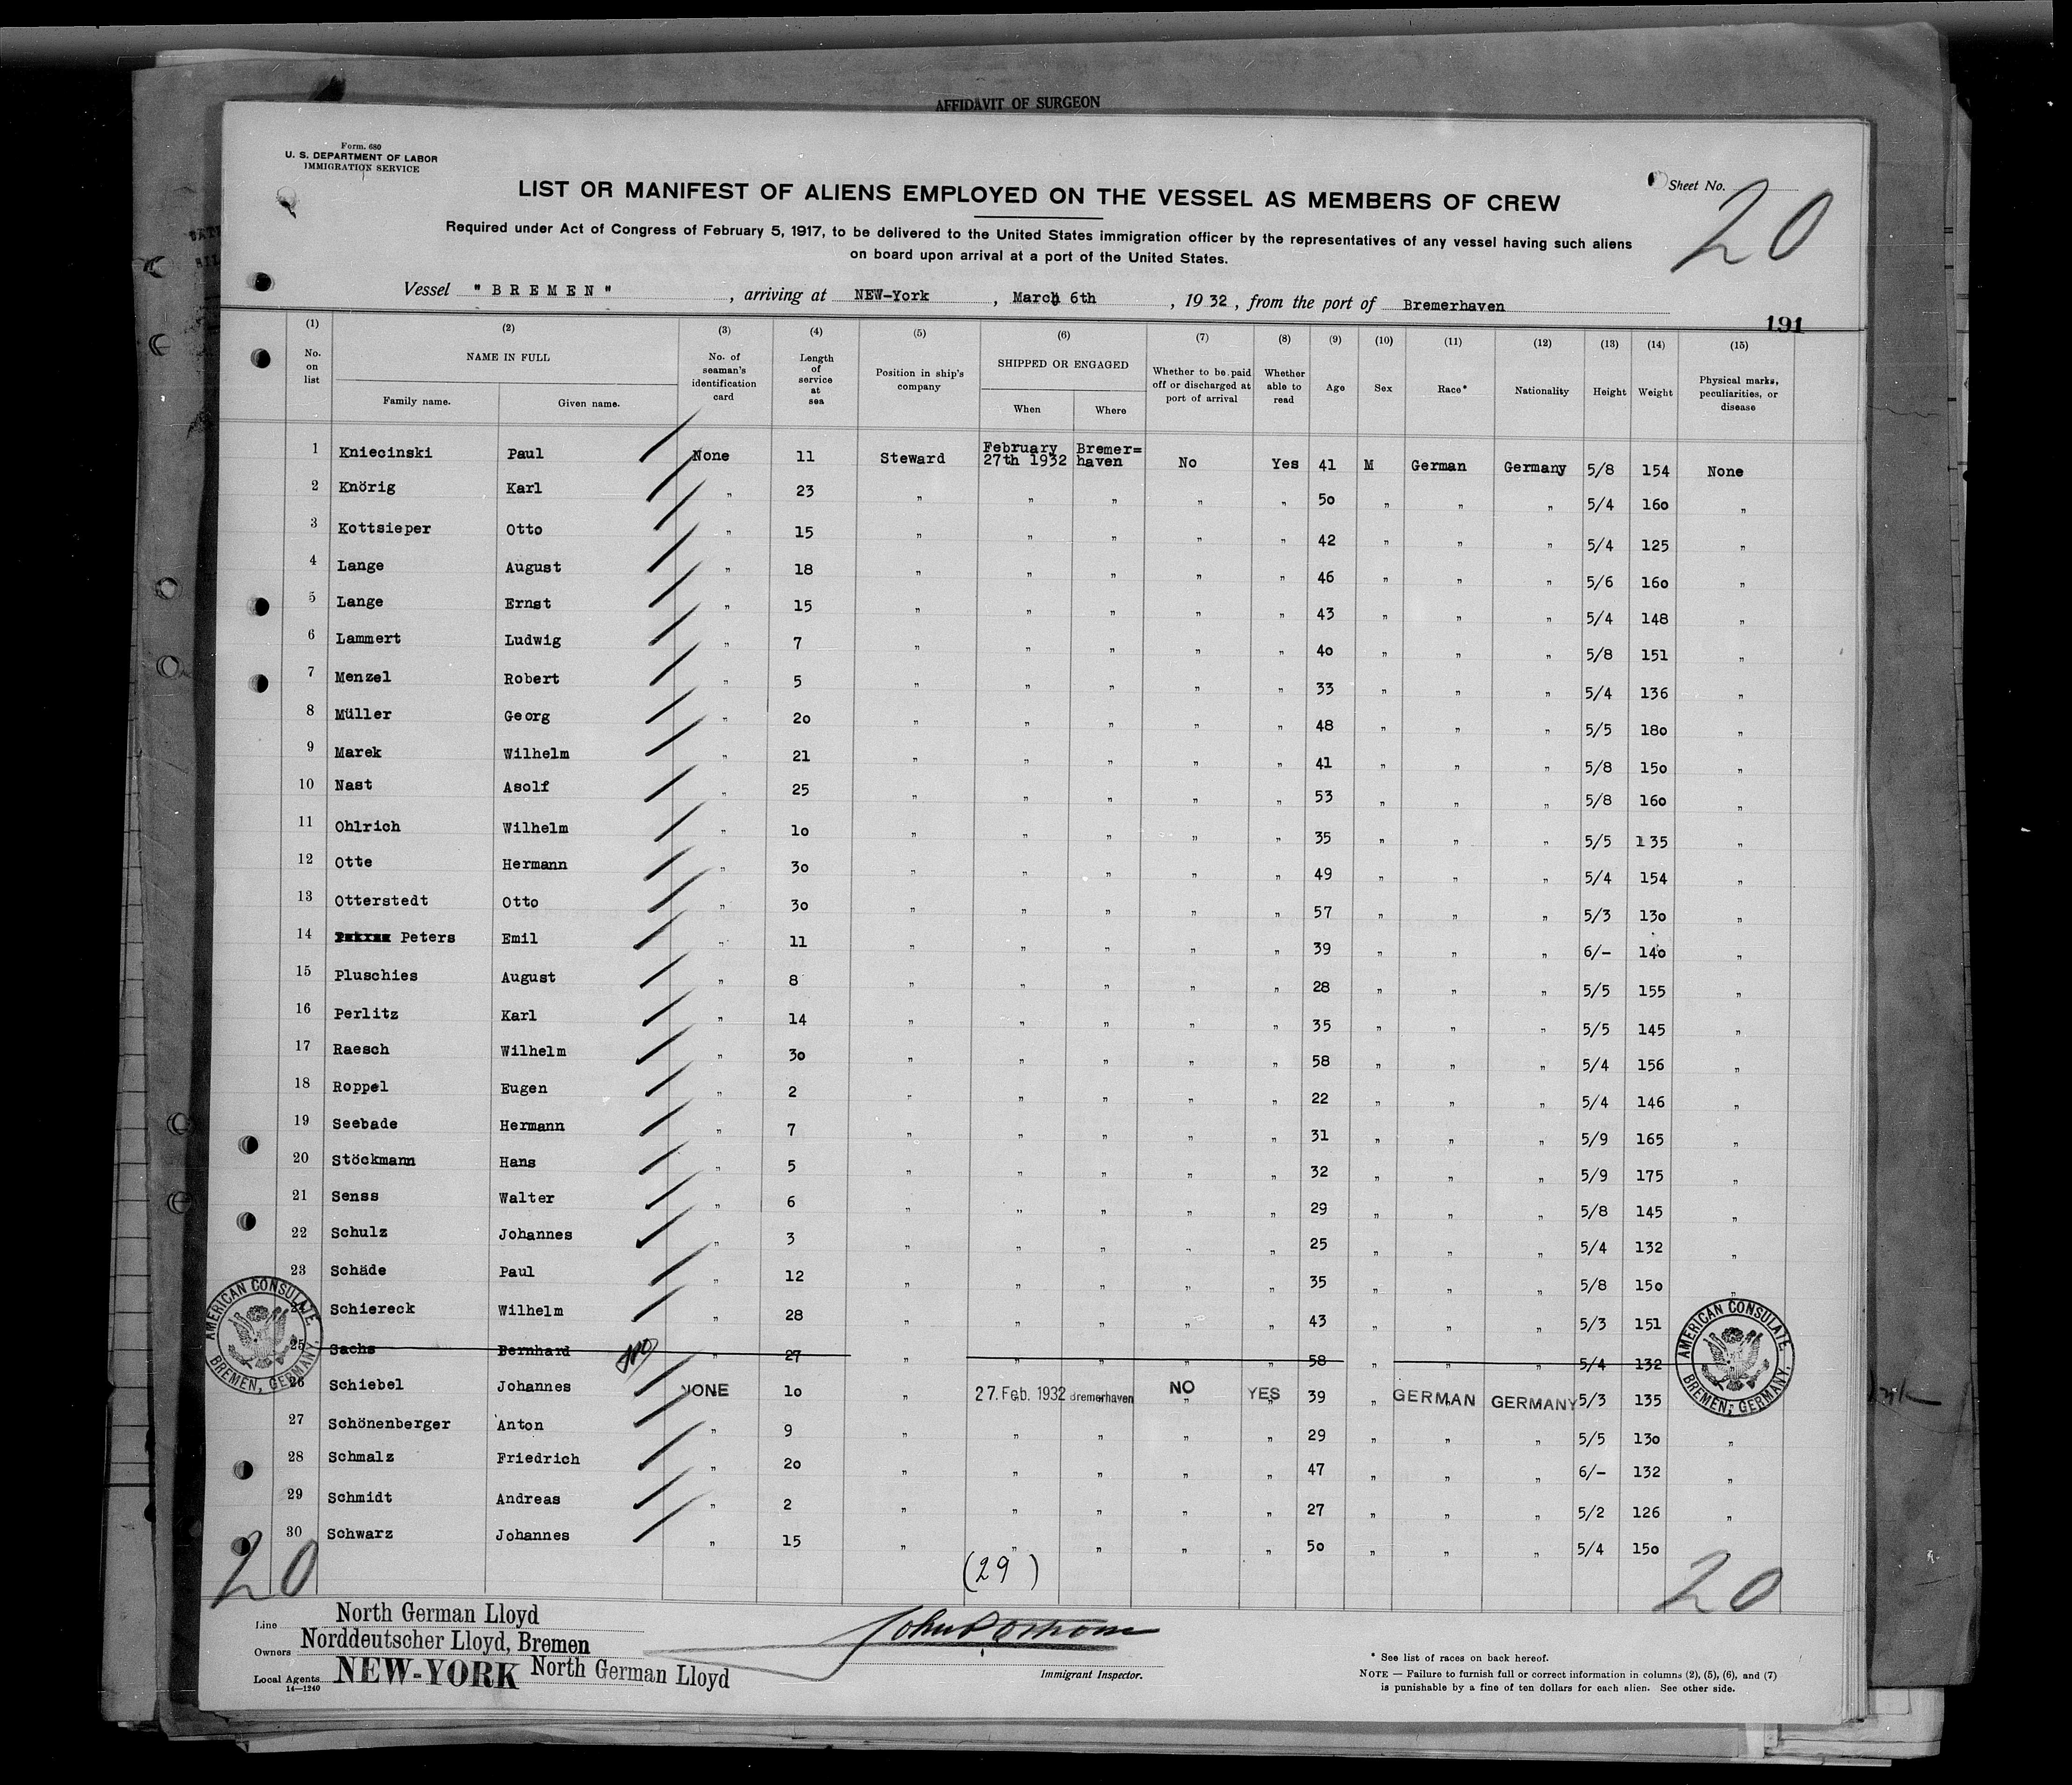 AFFIDAVIT OF SURGEON
Form. 680
U. S. DEPARTMENT OF LABOR
IMMIGRATION SERVICE
Sheet No. 20
LIST OR MANIFEST OF ALIENS EMPLOYED ON THE VESSEL AS MEMBERS OF CREW
Required under Act of Congress of February 5, 1917, to be delivered to the United States immigration officer by the representatives of any vessel having such aliens
on board upon arrival at a port of the United States.
Vessel " B R E M E N " , arriving at NEW-York , March 6th , 1932 , from the port of Bremerhaven
191
(1) (2) (3) (4) (5) (6) (7) (8) (9) (10) (11) (12) (13) (14) (15)
No. on list NAME IN FULL Family name. Given name. No. of seaman's identification card Length of service at sea Position in ship's company SHIPPED OR ENGAGED When Where Whether to be paid off or discharged at port of arrival Whether able to read Age Sex Race* Nationality Height Weight Physical marks, peculiarities, or disease
1 Kniecinski Paul None 11 Steward February 27th 1932 Bremer=haven No Yes 41 M German Germany 5/8 154 None
2 Knörig Karl " 23 " " " " " 50 " " " 5/4 160 "
3 Kottsieper Otto " 15 " " " " " 42 " " " 5/4 125 "
4 Lange August " 18 " " " " " 46 " " " 5/6 160 "
5 Lange Ernst " 15 " " " " " 43 " " " 5/4 148 "
6 Lammert Ludwig " 7 " " " " " 40 " " " 5/8 151 "
7 Menzel Robert " 5 " " " " " 33 " " " 5/4 136 "
8 Müller Georg " 20 " " " " " 48 " " " 5/5 180 "
9 Marek Wilhelm " 21 " " " " " 41 " " " 5/8 150 "
10 Nast Asolf " 25 " " " " " 53 " " " 5/8 160 "
11 Ohlrich Wilhelm " 10 " " " " " 35 " " " 5/5 135 "
12 Otte Hermann " 30 " " " " " 49 " " " 5/4 154 "
13 Otterstedt Otto " 30 " " " " " 57 " " " 5/3 130 "
14 Peters Emil " 11 " " " " " 39 " " " 6/- 140 "
15 Pluschies August " 8 " " " " " 28 " " " 5/5 155 "
16 Perlitz Karl " 14 " " " " " 35 " " " 5/5 145 "
17 Raesch Wilhelm " 30 " " " " " 58 " " " 5/4 156 "
18 Roppel Eugen " 2 " " " " " 22 " " " 5/4 146 "
19 Seebade Hermann " 7 " " " " " 31 " " " 5/9 165 "
20 Stöckmann Hans " 5 " " " " " 32 " " " 5/9 175 "
21 Senss Walter " 6 " " " " " 29 " " " 5/8 145 "
22 Schulz Johannes " 3 " " " " " 25 " " " 5/4 132 "
23 Schäde Paul " 12 " " " " " 35 " " " 5/8 150 "
24 Schiereck Wilhelm " 28 " " " " " 43 " " " 5/3 151
25 Sachs Bernhard " 27 " " " " " 58 " " " 5/4 132
26 Schiebel Johannes NONE 10 " 27. Feb. 1932 Bremerhaven NO YES 39 " GERMAN GERMANY 5/3 135
27 Schönenberger Anton " 9 " " " " " 29 " " " 5/5 130 "
28 Schmalz Friedrich " 20 " " " " " 47 " " " 6/- 132 "
29 Schmidt Andreas " 2 " " " " " 27 " " " 5/2 126 "
30 Schwarz Johannes " 15 " " " " " 50 " " " 5/4 150
AMERICAN CONSULATE BREMEN, GERMANY,
AMERICAN CONSULATE BREMEN, GERMANY,
20 (29) 20
Line North German Lloyd
Owners Norddeutscher Lloyd, Bremen
Local Agents NEW-YORK North German Lloyd
14—1240
Immigrant Inspector.
* See list of races on back hereof.
NOTE — Failure to furnish full or correct information in columns (2), (5), (6), and (7)
is punishable by a fine of ten dollars for each alien. See other side.